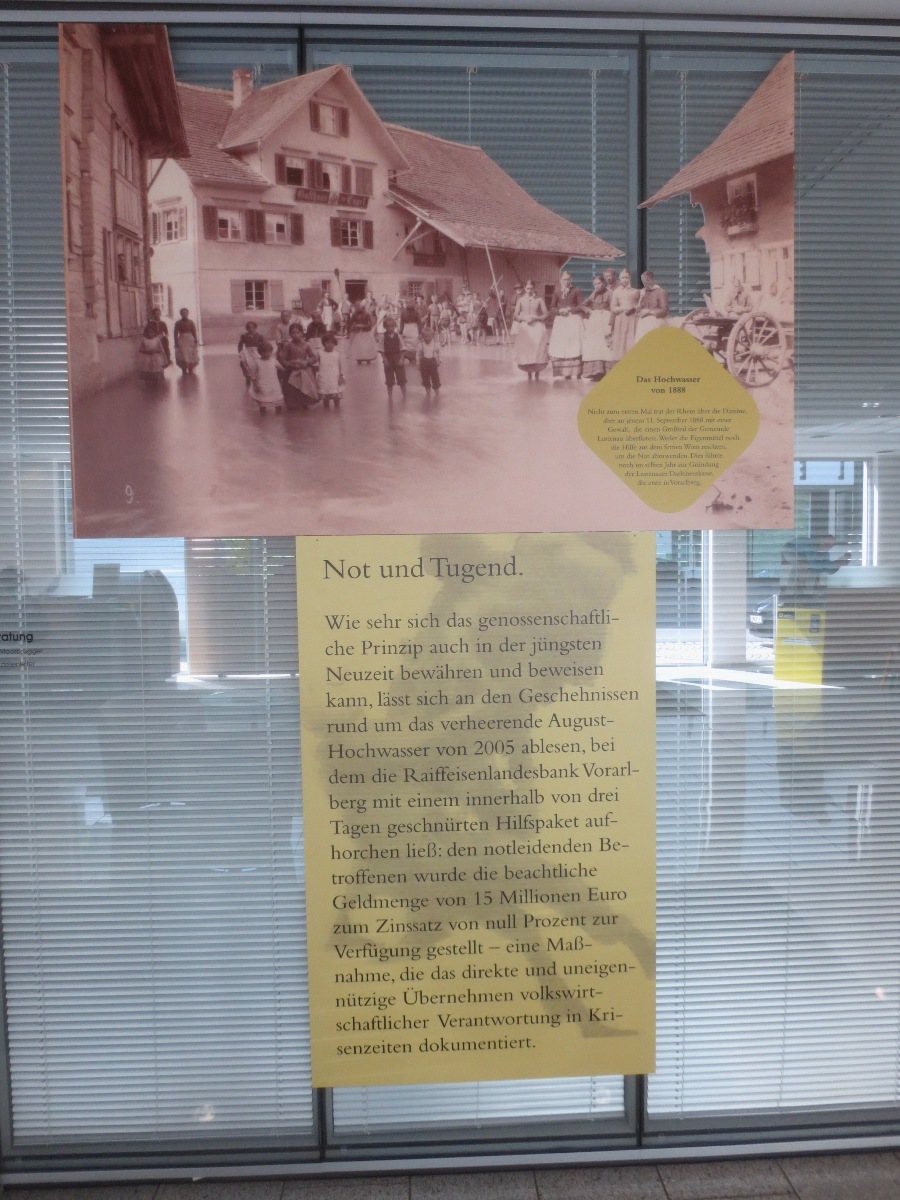 Das Hochwasser
von 1888
Nicht zum ersten Mal trat der Rhein über die Dämme,
aber an jenem 11. September 1888 mit einer
Gewalt, die einen Großteil der Gemeinde
Lustenau überflutete. Weder die Eigenmittel noch
die Hilfe aus dem fernen Wien reichten,
um die Not abzuwenden. Dies führte
noch im selben Jahr zur Gründung
der Lustenauer Darlehenskasse,
die erste in Vorarlberg.
9.
Not und Tugend.
Wie sehr sich das genossenschaftli-
che Prinzip auch in der jüngsten
Neuzeit bewähren und beweisen
kann, lässt sich an den Geschehnissen
rund um das verheerende August-
Hochwasser von 2005 ablesen, bei
dem die Raiffeisenlandesbank Vorarl-
berg mit einem innerhalb von drei
Tagen geschnürten Hilfspaket auf-
horchen ließ: den notleidenden Be-
troffenen wurde die beachtliche
Geldmenge von 15 Millionen Euro
zum Zinssatz von null Prozent zur
Verfügung gestellt – eine Maß-
nahme, die das direkte und uneigen-
nützige Übernehmen volkswirt-
schaftlicher Verantwortung in Kri-
senzeiten dokumentiert.
ratung